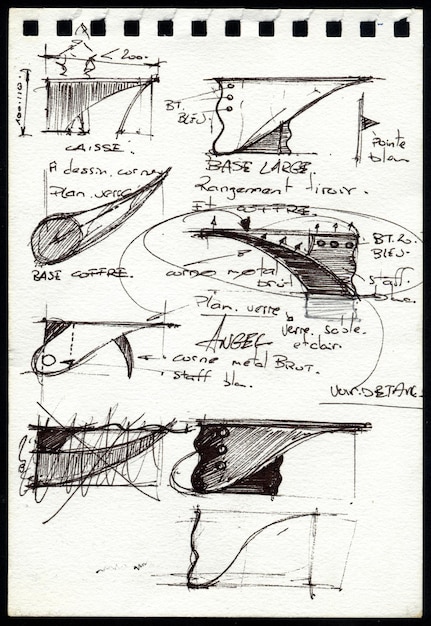 < 200.
100.110.
BT.
BLEU.
CAISSE.
BASE LARGE
Pointe
A dessin. corne
Plan. verre
Rangement tiroir.
Et COFFRE.
BT.
BLEU.
BASE COFFRE.
corne metal
brut
staff.
Plan. verre
verre. sable.
et clair.
ANGEL
corne metal BRUT.
staff
VOIR. DETAIL